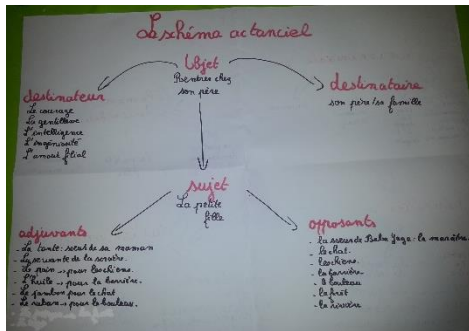 Le schéma actanciel
Objet
Rentrer chez
son père
destinateur
Le courage
La gentillesse
L'intelligence
L'ingéniosité
L'amour filial
destinataire
son père/sa famille
sujet
La petite
fille
adjuvants
- La tante: sœur de sa maman
- La servante de la sorcière.
- Le pain → pour les chiens.
- L'huile → pour la barrière.
- Le jambon pour le chat
- Le ruban → pour le bouleau.
opposants
- la sœur de Baba Yaga: la marâtre.
- le chat.
- les chiens.
- la barrière
- le bouleau
- la forêt
- la rivière